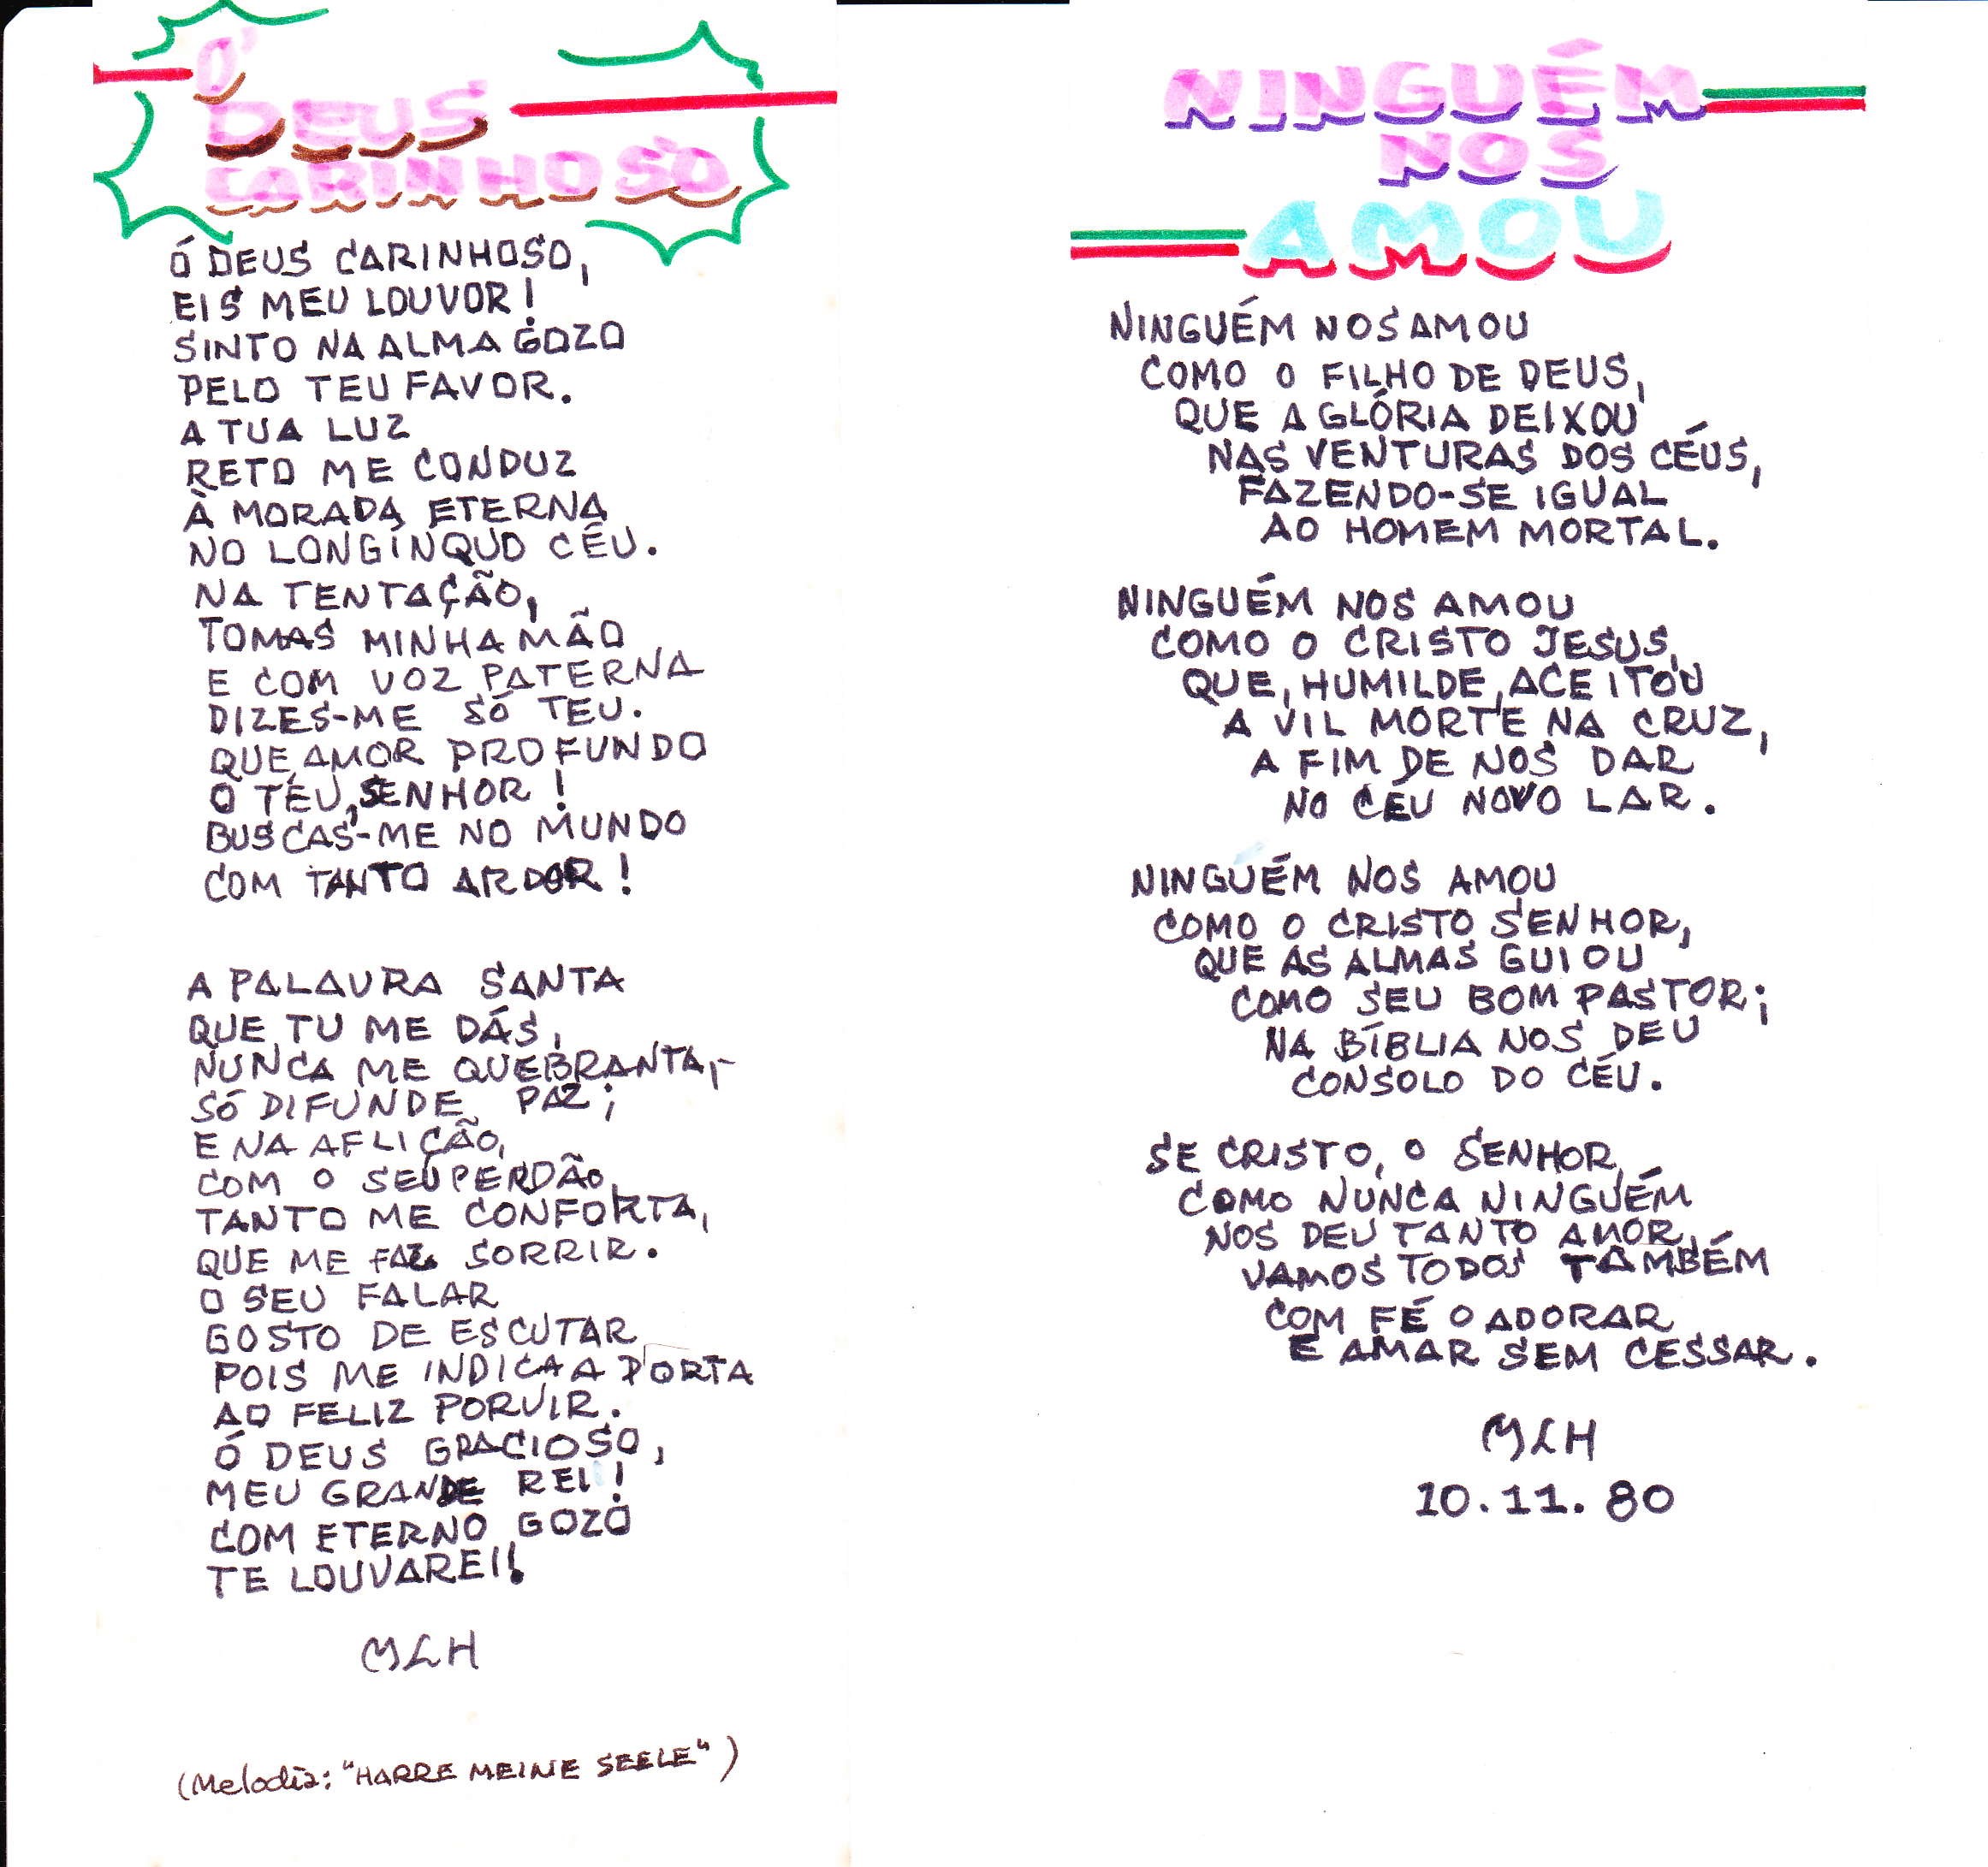 Ó
DEUS
CARINHOSO
Ó DEUS CARINHOSO,
EIS MEU LOUVOR!
SINTO NA ALMA GOZO
PELO TEU FAVOR.
A TUA LUZ
RETO ME CONDUZ
À MORADA ETERNA
NO LONGÍNQUO CÉU.
NA TENTAÇÃO,
TOMAS MINHA MÃO
E COM VOZ PATERNA
DIZES-ME SÓ TEU.
QUE AMOR PROFUNDO
O TEU, SENHOR!
BUSCAS-ME NO MUNDO
COM TANTO ARDOR!
A PALAVRA SANTA
QUE TU ME DÁS,
NUNCA ME QUEBRANTA,-
SÓ DIFUNDE PAZ;
E NA AFLIÇÃO,
COM O SEU PERDÃO,
TANTO ME CONFORTA,
QUE ME FAZ SORRIR.
O SEU FALAR
GOSTO DE ESCUTAR
POIS ME INDICA A PORTA
AO FELIZ PORVIR.
Ó DEUS GRACIOSO,
MEU GRANDE REI!
COM ETERNO GOZO
TE LOUVAREI!
MLH
(Melodia: "HARRE MEINE SEELE")
NINGUÉM
NOS
AMOU
NINGUÉM NOS AMOU
COMO O FILHO DE DEUS,
QUE A GLÓRIA DEIXOU
NAS VENTURAS DOS CÉUS,
FAZENDO-SE IGUAL
AO HOMEM MORTAL.
NINGUÉM NOS AMOU
COMO O CRISTO JESUS,
QUE, HUMILDE, ACEITOU
A VIL MORTE NA CRUZ,
A FIM DE NOS DAR
NO CÉU NOVO LAR.
NINGUÉM NOS AMOU
COMO O CRISTO SENHOR,
QUE AS ALMAS GUIOU
COMO SEU BOM PASTOR;
NA BÍBLIA NOS DEU
CONSOLO DO CÉU.
SE CRISTO, O SENHOR,
COMO NUNCA NINGUÉM
NOS DEU TANTO AMOR,
VAMOS TODOS TAMBÉM
COM FÉ O ADORAR
E AMAR SEM CESSAR.
MLH
10.11.80